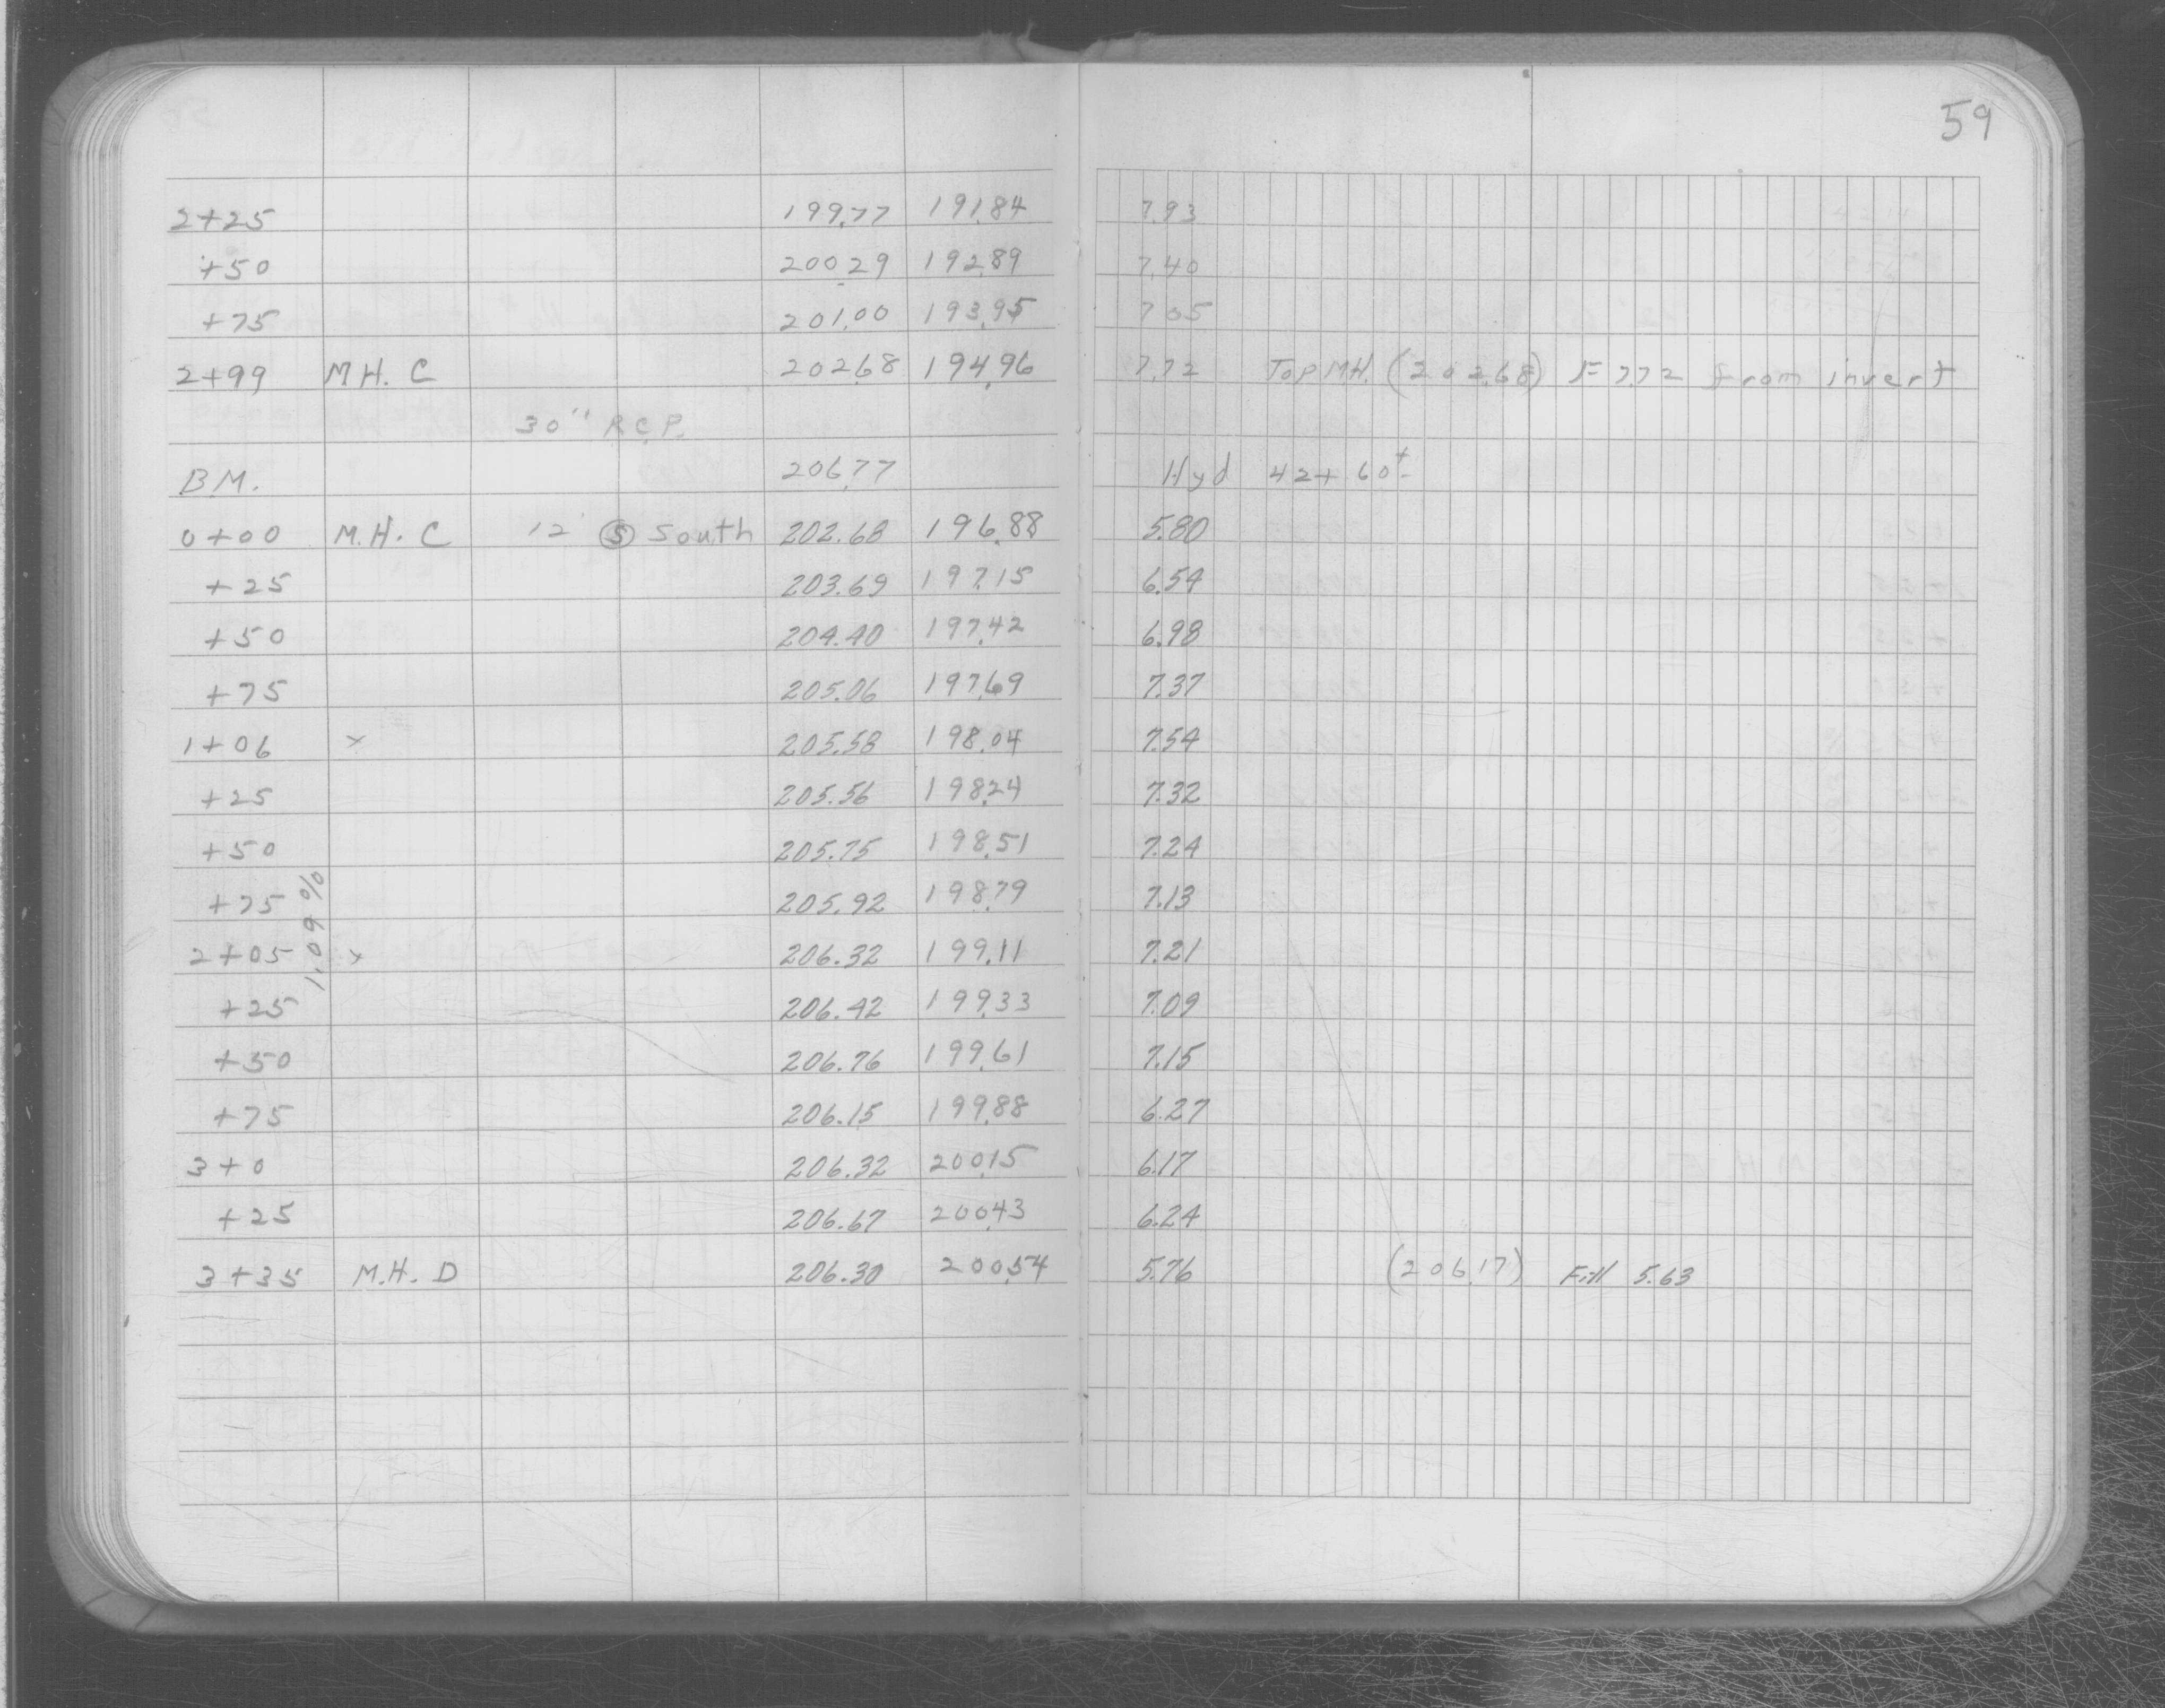 59
2+25 199.77 191.84 7.93
+50 200.29 192.89 7.40
+75 201.00 193.95 7.05
2+99 M.H. C 202.68 194.96 7.72 Top M.H. (202.68) F 7.72 from invert
30" R.C.P.
B.M. 206.77 Hyd 42+60±
0+00 M.H. C 12 Ⓢ South 202.68 196.88 5.80
+25 203.69 197.15 6.54
+50 204.40 197.42 6.98
+75 205.06 197.69 7.37
1+06 x 205.58 198.04 7.54
+25 205.56 198.24 7.32
+50 205.75 198.51 7.24
+75 205.92 198.79 7.13
1.09%
2+05 x 206.32 199.11 7.21
+25 206.42 199.33 7.09
+50 206.76 199.61 7.15
+75 206.15 199.88 6.27
3+0 206.32 200.15 6.17
+25 206.67 200.43 6.24
3+35 M.H. D 206.30 200.54 5.76 (206.17) Fill 5.63